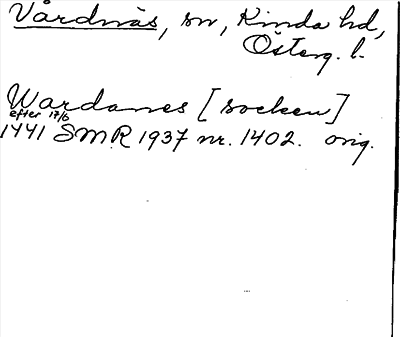 Vårdnäs, sn, Kinda hd,
Österg. l.
Wardanes [socken]
efter 17/6
1441 SMR 1937 nr. 1402. orig.